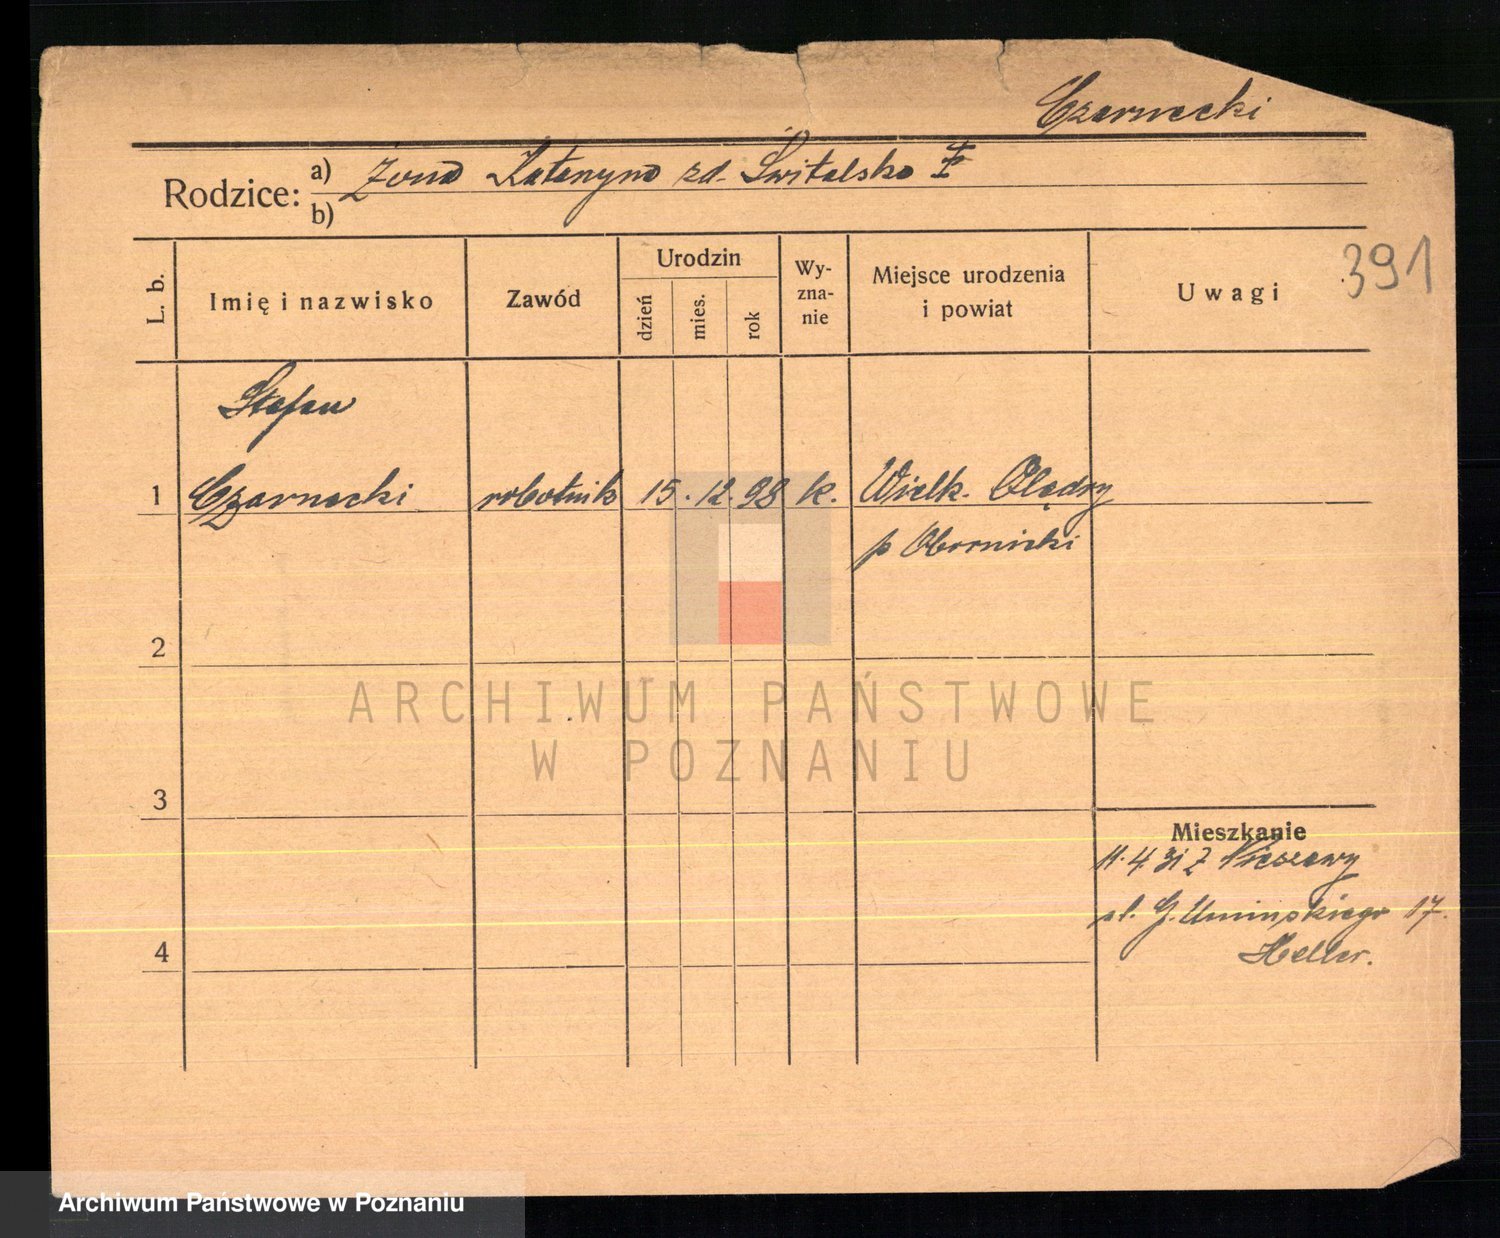 Czarnecki
Rodzice:
a) Żona Katarzyna zd. Świtalska
b)
L. b.
Imię i nazwisko
Zawód
Urodzin
dzień
mies.
rok
Wy-
zna-
nie
Miejsce urodzenia
i powiat
Uwagi
391
Stefan
1 Czarnecki robotnik 15. 12. 98 k. Wielk. Olędry
p Obornicki
2
3
4
Mieszkanie
11. 4 31 z Nieszawy
ul. G. Umińskiego 17.
Heller.
ARCHIWUM PAŃSTWOWE
W POZNANIU
Archiwum Państwowe w Poznaniu